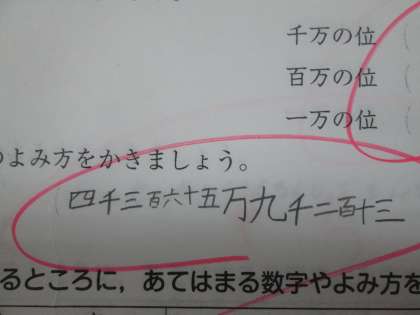 千万の位
百万の位
一万の位
のよみ方をかきましょう。
四千三百六十五万九千二百十三
るところに，あてはまる数字やよみ方を